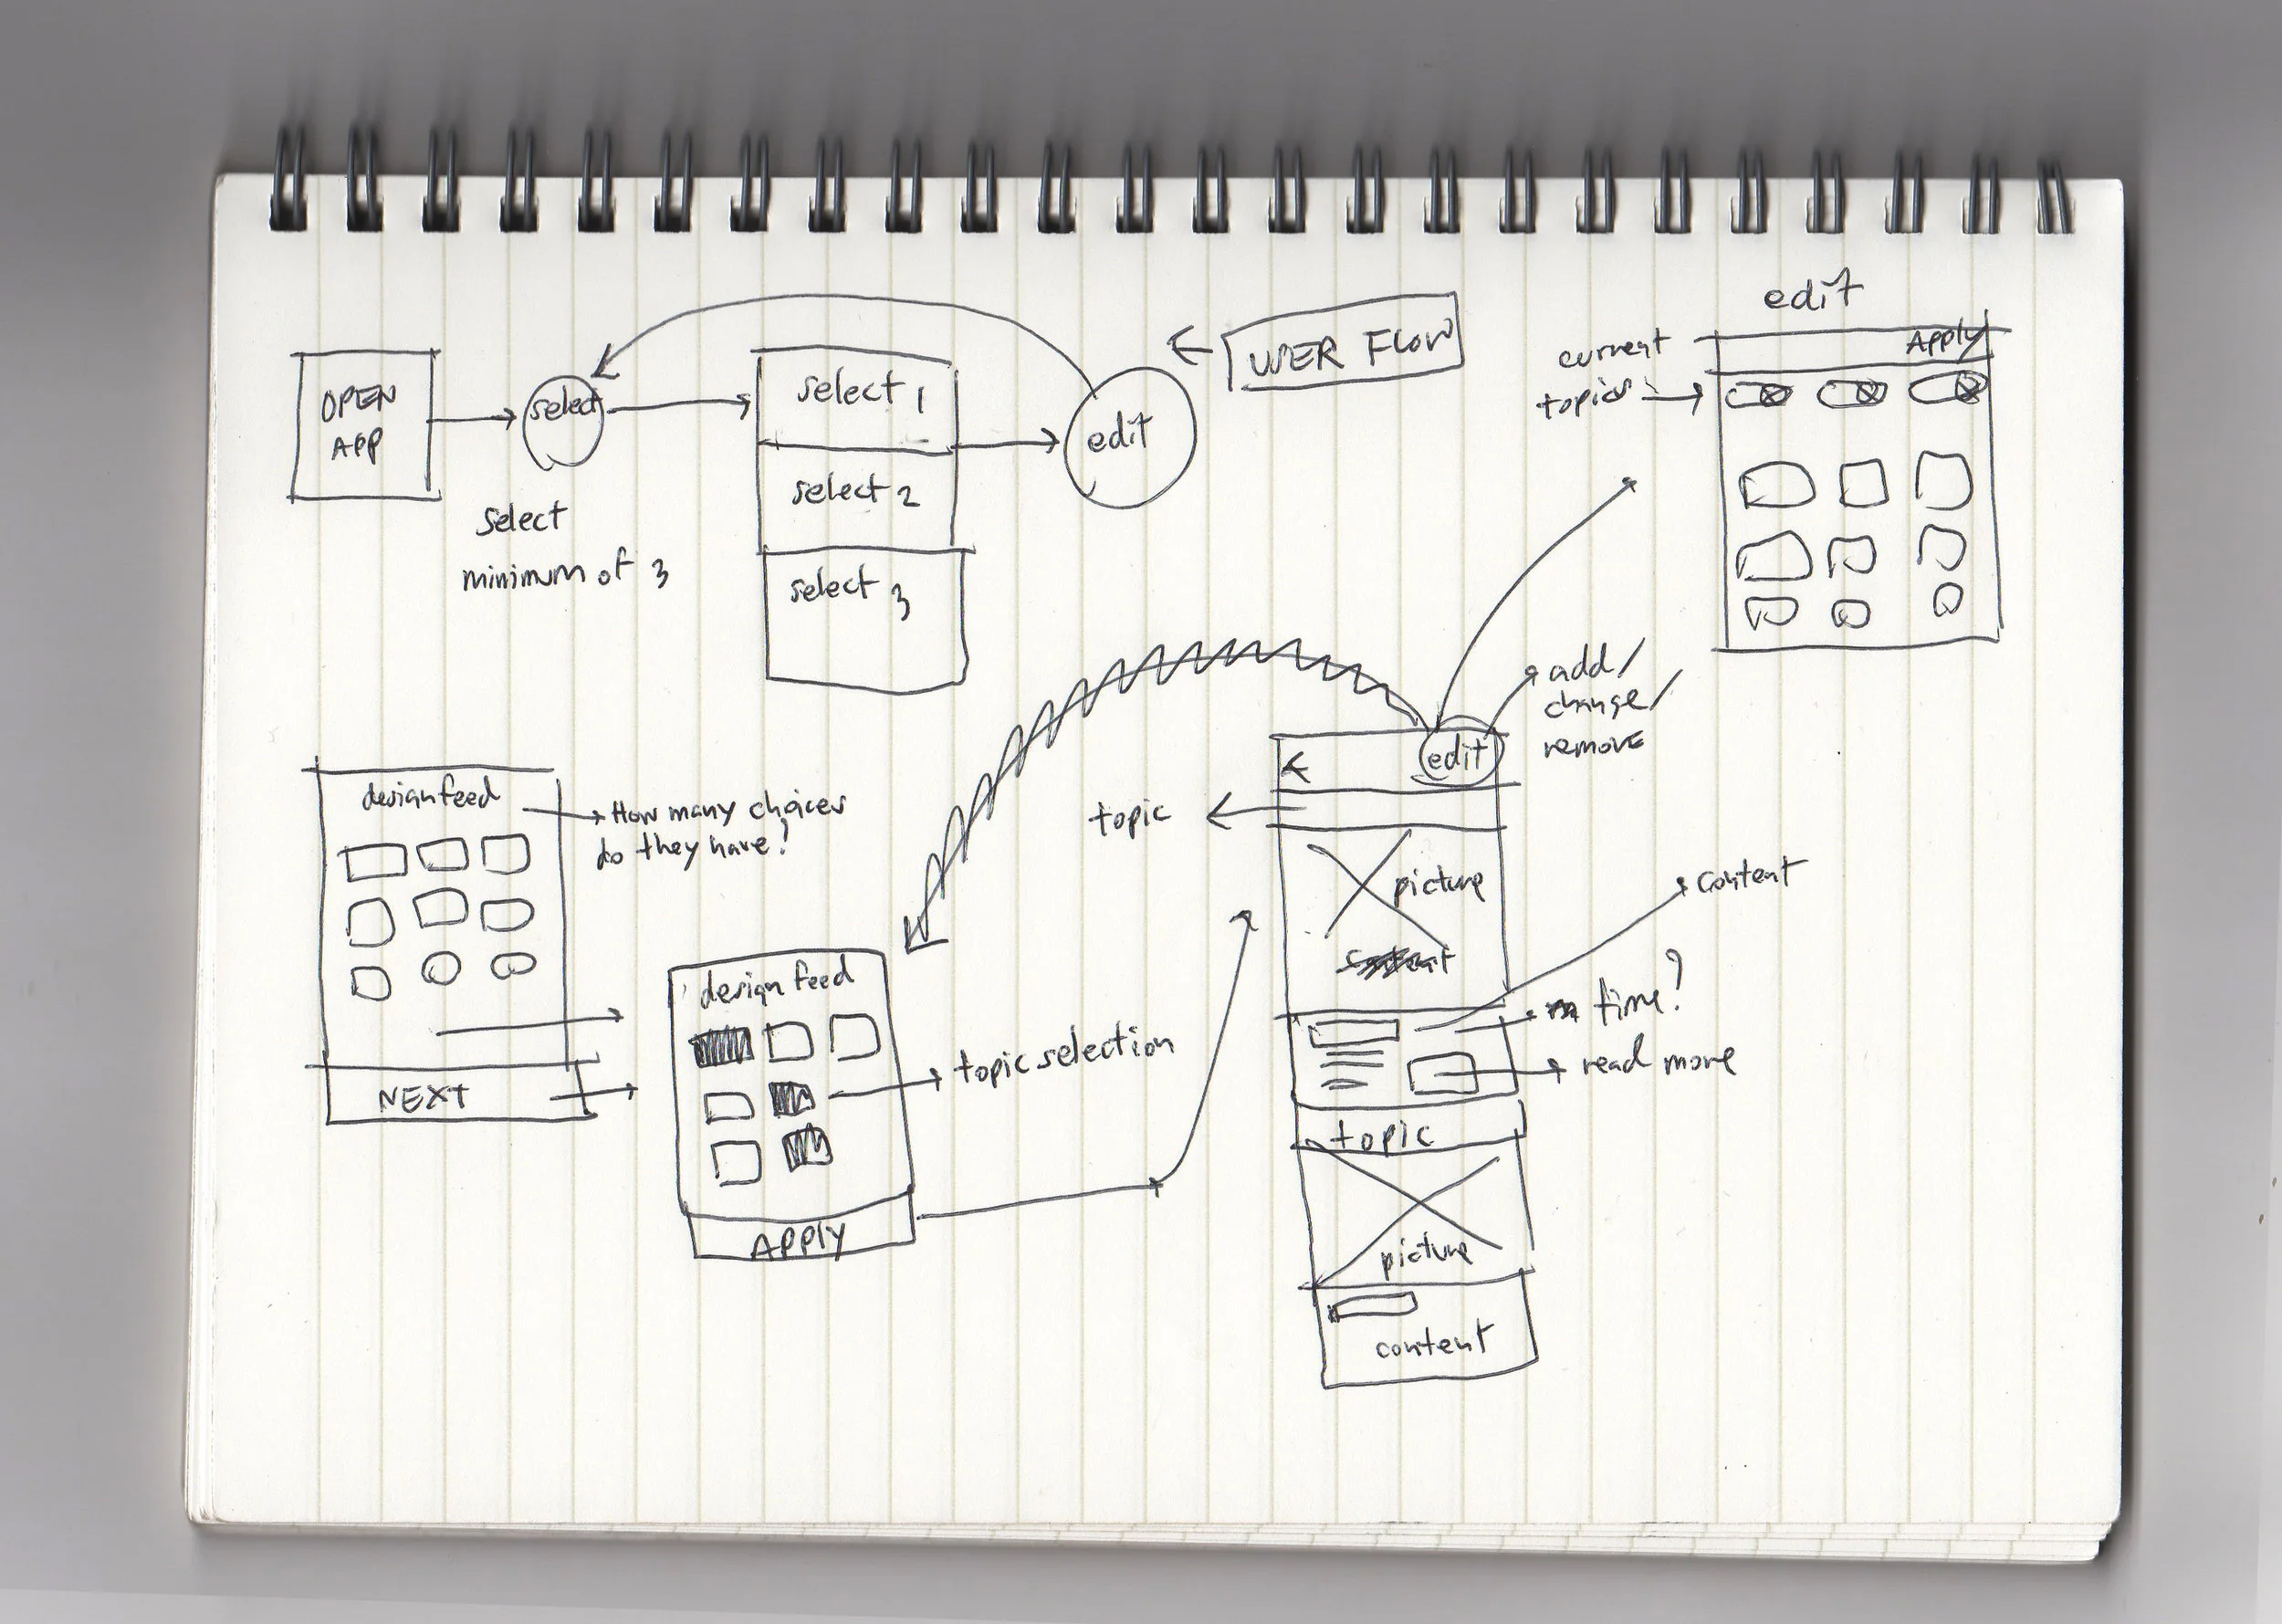 OPEN
APP
select
select
minimum of 3
select 1
select 2
select 3
edit
USER FLOW
edit
Apply
current
topics
add/
change/
remove
designfeed
How many choices
do they have?
NEXT
design feed
topic selection
APPLY
edit
topic
picture
content
time?
read more
topic
picture
content